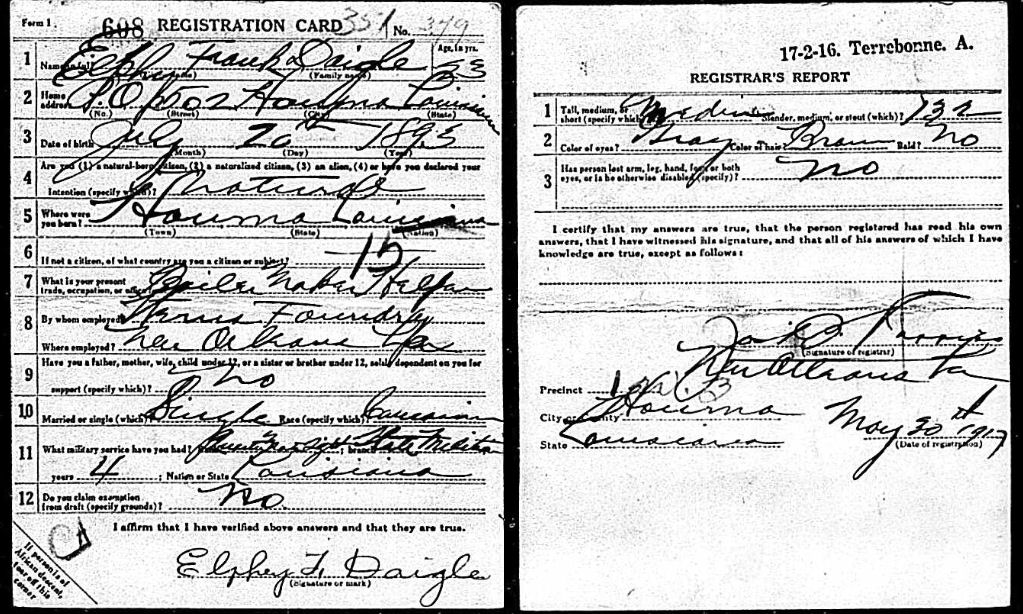 Form 1 608 REGISTRATION CARD 351 No. 379
1 Name in full Elphy Frank Daigle Age, in yrs. 23
(Family name)
2 Home address P.O. 502 Houma Louisiana
(No.) (Street) (City) (State)
3 Date of birth July 20th 1893
(Month) (Day) (Year)
4 Are you (1) a natural-born citizen, (2) a naturalized citizen, (3) an alien, (4) or have you declared your
intention (specify which)? Natural
5 Where were you born? Houma Louisiana
(Town) (State) (Nation)
6 If not a citizen, of what country are you a citizen or subject?
7 What is your present trade, occupation, or office? Boiler Maker Helper
8 By whom employed? Foundry
Where employed? New Orleans La
9 Have you a father, mother, wife, child under 12, or a sister or brother under 12, solely dependent on you for
support (specify which)? No
10 Married or single (which)? Single Race (specify which)? Caucasian
11 What military service have you had? State Militia ; branch
years 4 ; Nation or State Louisiana
12 Do you claim exemption from draft (specify grounds)? No.
I affirm that I have verified above answers and that they are true.
Elphey F. Daigle
(Signature or mark)
If person is of
African descent,
tear off this
corner
17-2-16. Terrebonne. A.
REGISTRAR'S REPORT
1 Tall, medium, or short (specify which)? Medium Slender, medium, or stout (which)? 132
2 Color of eyes? Gray Color of hair? Brown Bald? No
3 Has person lost arm, leg, hand, foot, or both
eyes, or is he otherwise disabled (specify)? No
I certify that my answers are true, that the person registered has read his own
answers, that I have witnessed his signature, and that all of his answers of which I have
knowledge are true, except as follows:
(Signature of registrar)
New Orleans La
Precinct
City or County Houma May 30th 1917
State Louisiana (Date of registration)